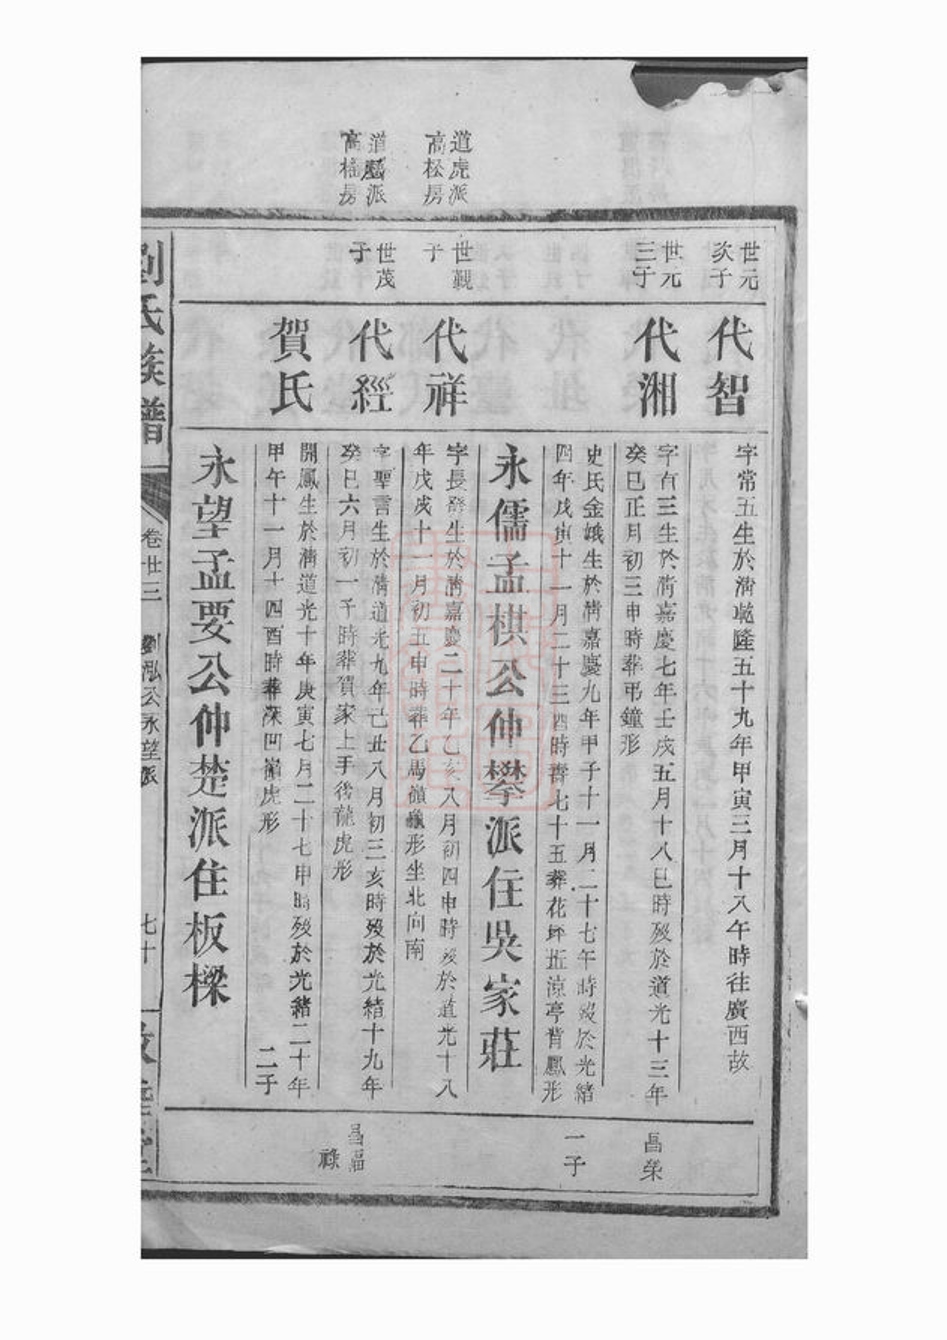 世元
次子
代智
字常五生於清乾隆五十九年甲寅三月十八午時往廣西故
世元
三子
代湘
字有三生於清嘉慶七年壬戌五月十八巳時歿於道光十三年
癸巳正月初三申時葬弔鐘形
昌榮
史氏金娥生於清嘉慶九年甲子十一月二十七午時歿於光緒
四年戊寅十一月二十三酉時壽七十五葬花坪涼亭背鳳形
一子
永儒孟棋公仲攀派住吳家莊
道虎派
高松房
世觀
子
代祥
字長發生於清嘉慶二十年乙亥八月初四申時歿於道光十八
年戊戌十一月初五申時葬乙馬嶺形坐北向南
道派
高房
世茂
子
代經
字聖言生於清道光九年己丑八月初三亥時歿於光緒十九年
癸巳六月初一子時葬賀家上手後龍虎形
昌福
祿
賀氏
開鳳生於清道光十年庚寅七月二十七申時歿於光緒二十年
甲午十一月十四酉時葬深凹嶺虎形
二子
永望孟要公仲楚派住板樑
劉氏族譜
卷廿三
劉泓公永望派
七十